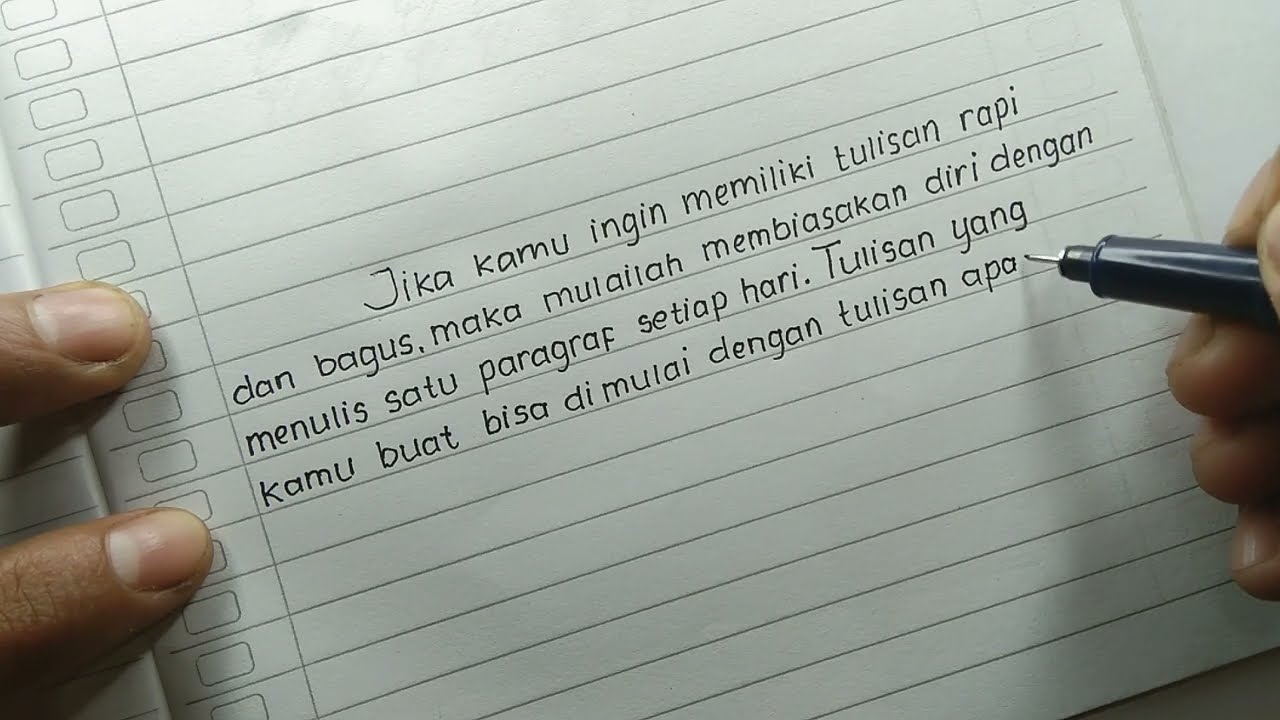 Jika kamu ingin memiliki tulisan rapi
dan bagus, maka mulailah membiasakan diri dengan
menulis satu paragraf setiap hari. Tulisan yang
kamu buat bisa dimulai dengan tulisan apa